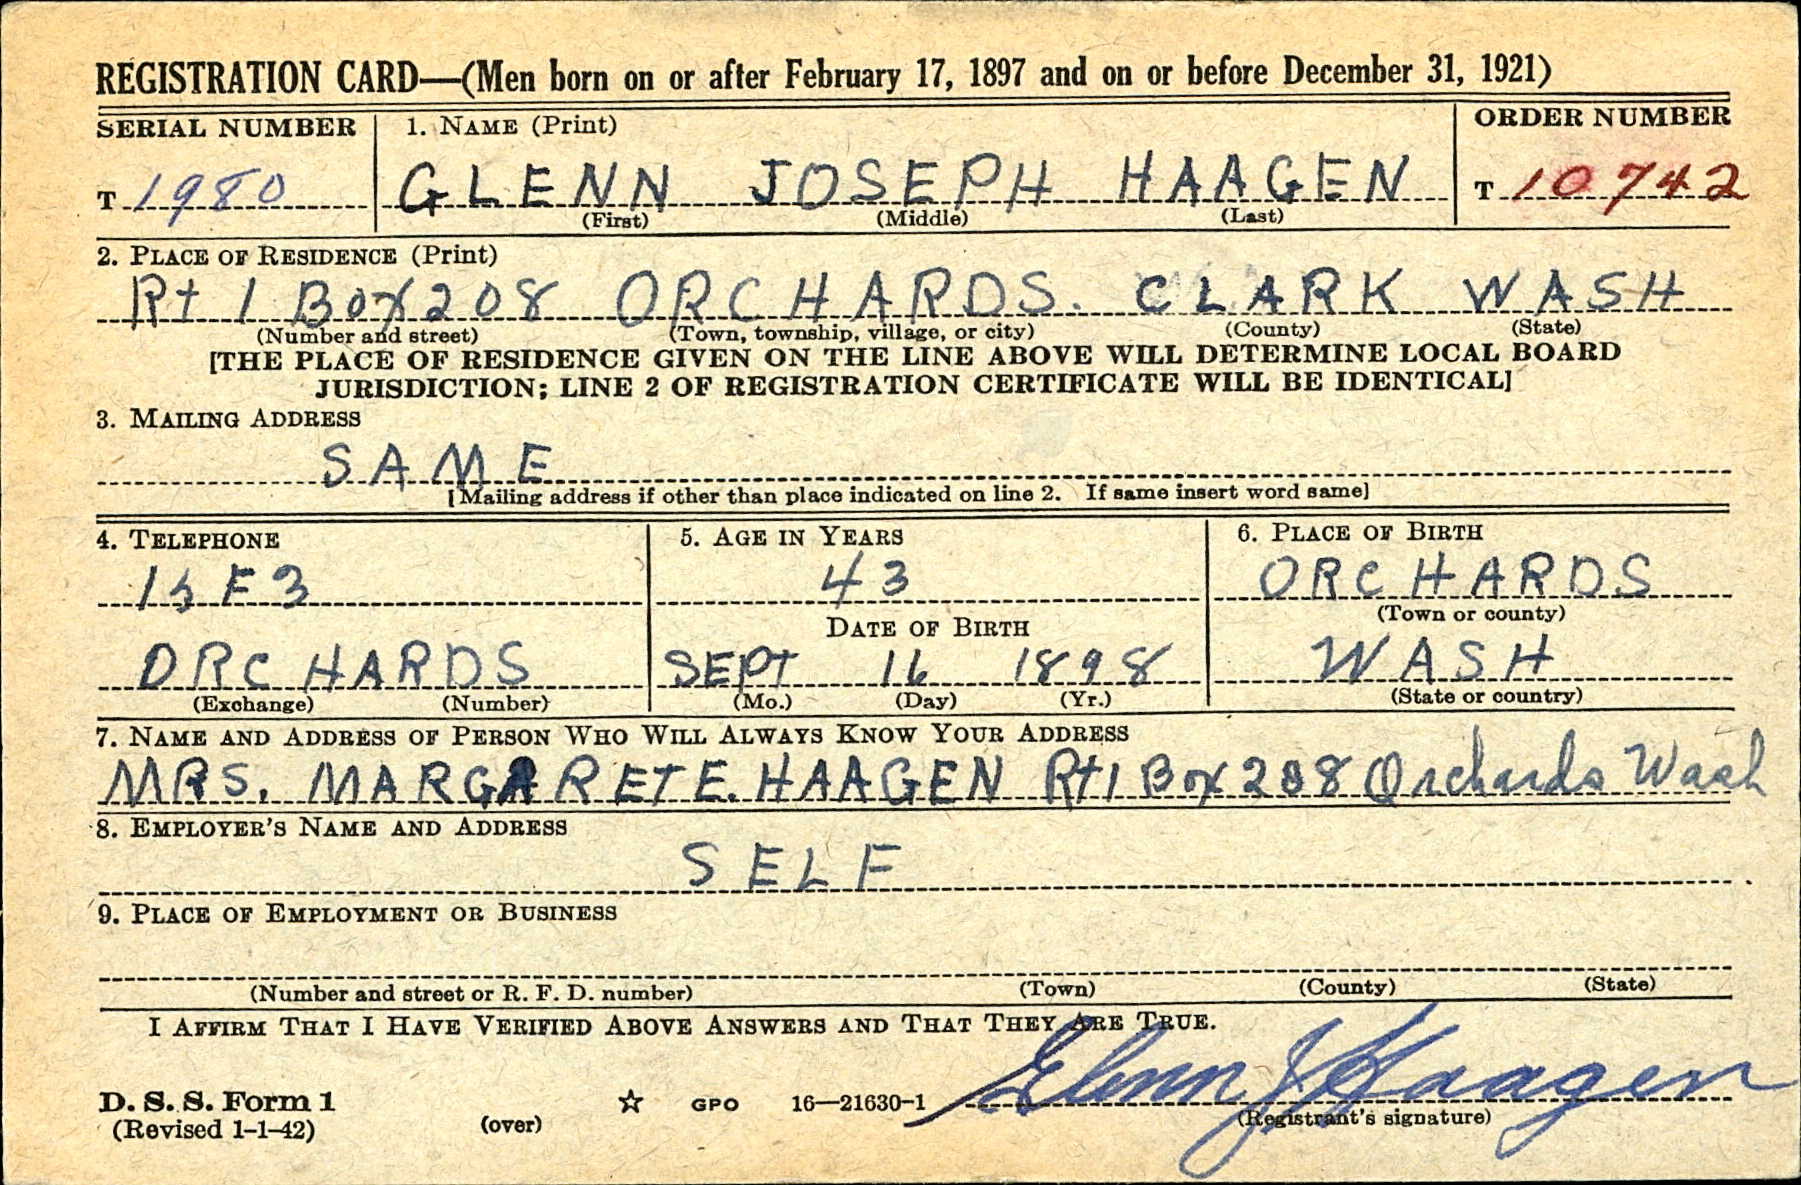 REGISTRATION CARD—(Men born on or after February 17, 1897 and on or before December 31, 1921)
SERIAL NUMBER 1. NAME (Print) ORDER NUMBER
T 1980 GLENN JOSEPH HAAGEN T 10742
(First) (Middle) (Last)
2. PLACE OF RESIDENCE (Print)
Rt 1 Box 208 ORCHARDS. CLARK WASH
(Number and street) (Town, township, village, or city) (County) (State)
[THE PLACE OF RESIDENCE GIVEN ON THE LINE ABOVE WILL DETERMINE LOCAL BOARD
JURISDICTION; LINE 2 OF REGISTRATION CERTIFICATE WILL BE IDENTICAL]
3. MAILING ADDRESS
SAME
[Mailing address if other than place indicated on line 2. If same insert word same]
4. TELEPHONE 5. AGE IN YEARS 6. PLACE OF BIRTH
43 ORCHARDS
(Town or county)
DATE OF BIRTH
ORCHARDS SEPT 16 1898 WASH
(Exchange) (Number) (Mo.) (Day) (Yr.) (State or country)
7. NAME AND ADDRESS OF PERSON WHO WILL ALWAYS KNOW YOUR ADDRESS
MRS. MARGARET E. HAAGEN Rt 1 Box 208 Orchards Wash
8. EMPLOYER'S NAME AND ADDRESS
SELF
9. PLACE OF EMPLOYMENT OR BUSINESS
(Number and street or R. F. D. number) (Town) (County) (State)
I AFFIRM THAT I HAVE VERIFIED ABOVE ANSWERS AND THAT THEY ARE TRUE.
Glenn J Haagen
D. S. S. Form 1 (over) ☆ GPO 16—21630-1 (Registrant's signature)
(Revised 1-1-42)